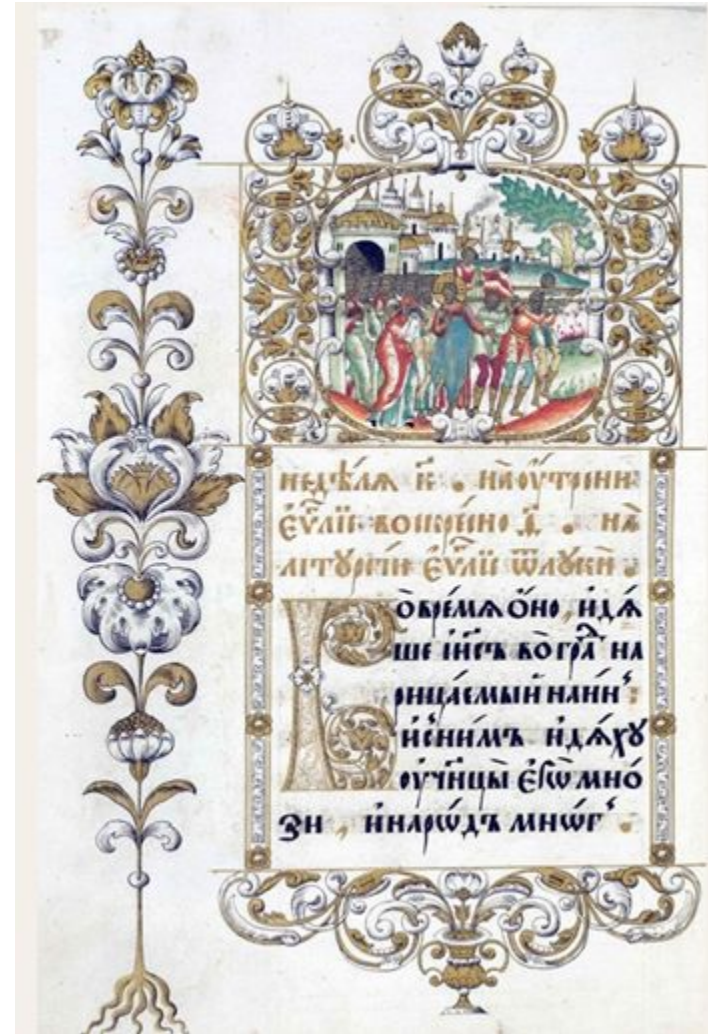 недѣ́лѧ к҃ . наоу́трени
є҆ѵⷢ҇лїе воскре́сно д҃ . на
лїтꙋргі́и є҆ѵⷢ҇лїе ѿлꙋкѝ .
Во̀вре́мѧ ѻ҆́но , и҆дѧ́
ше і҆и҃съ во̀гра́ⷣ на
рица́емый наи́нъ
и҆сни́мъ и҆дѧ́хꙋ
оу҆чн҃цы̀ є҆гѡ̀ мно́
зи , и҆наро́дъ мнѡ́гъ .